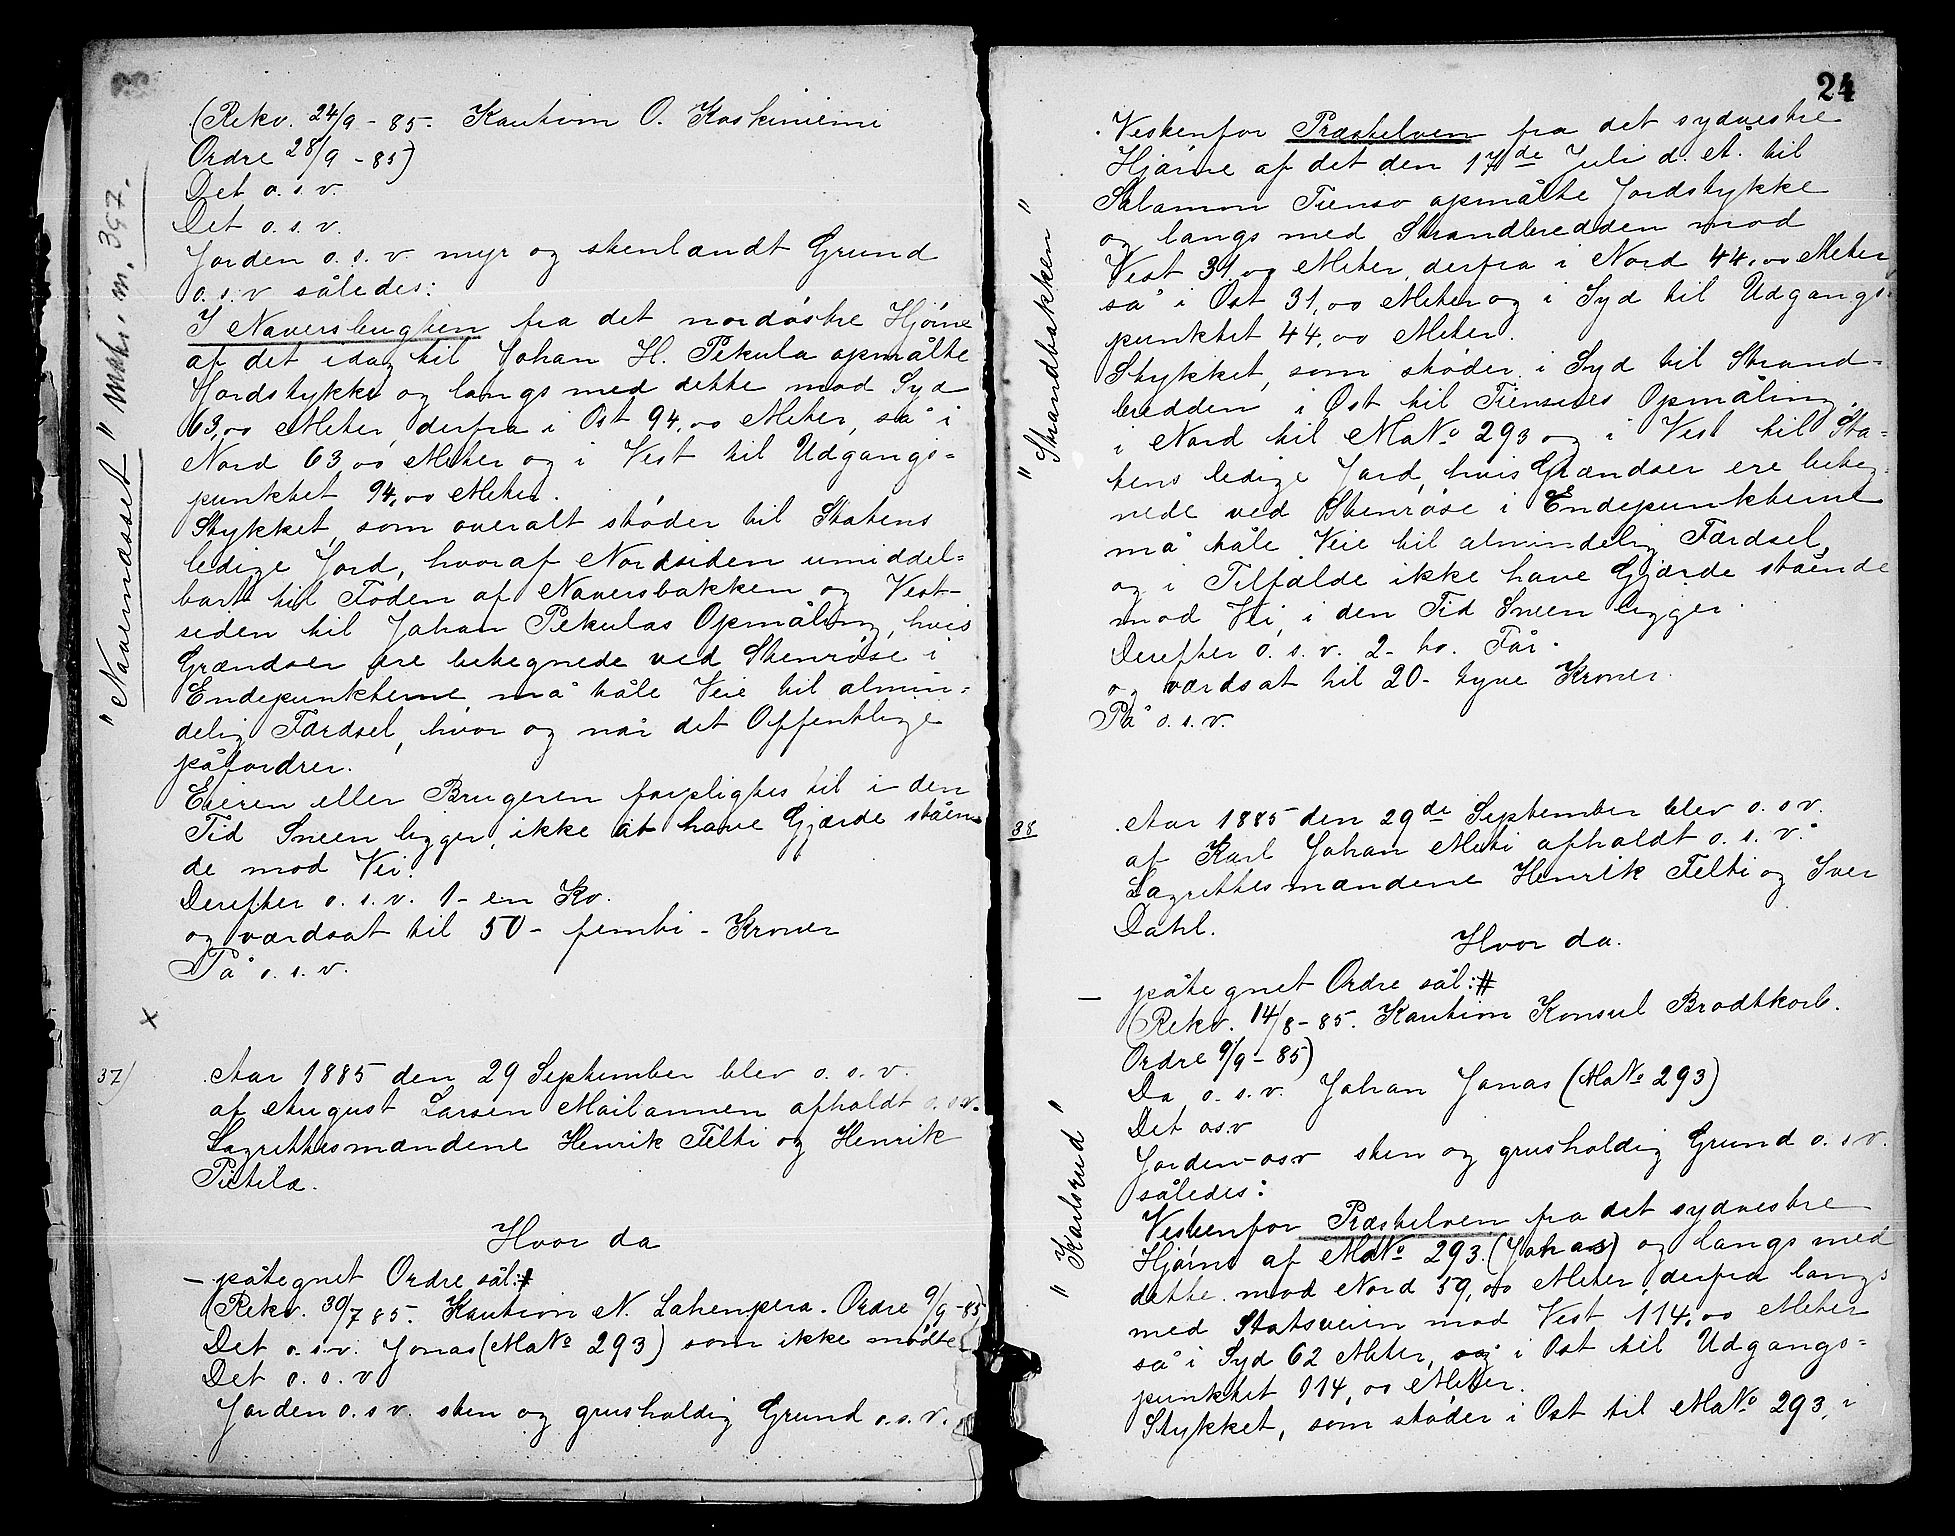 (Rekv. 24/9 - 85. Kaution O. Koskiniemi
Ordre 28/9 - 85)
Det o.s.v.
Det o.s.v.
Jorden o.s.v. myr og stenlændt Grund
o.s.v således:
I Naversbugten fra det nordøstre Hjørne
af det idag til Johan H. Pekula opmålte
Jordstykke og langs med dette mod Syd
63,00 Meter, derfra i Ost 94,00 Meter, så i
Nord 63,00 Meter og i Vest til Udgangs-
punktet 94,00 Meter.
Stykket, som overalt støder til Statens
ledige Jord, hvoraf Nordsiden umiddel-
bart til Foden af Naversbakken og Vest-
siden til Johan Pekulas Opmåling, hvis
Grændser ere betegnede ved Stenrøse i
Endepunkterne, må tåle Veie til almin-
delig Færdsel, hvor og når det Offentlige
påfordrer.
Eieren eller Brugeren forpligtes til i den
Tid Sneen ligger, ikke at have Gjærde ståen-
de mod Vei.
Derefter o.s.v. 1 - en Ko.
og værdsat til 50 - femti - Kroner
På o.s.v.
"Navernæsset" Matr. n. 397.
x
37)
Aar 1885 den 29 September blev o.s.v.
af August Larsen Mailannen afholdt o.s.v.
Lagrettesmændene Henrik Filti og Henrik
Pietila.
Hvor da
- påtegnet Ordre sål:#
(Rekv. 30/7 85. Kaution N. Lahenpera. Ordre 9/9-85)
Det o.s.v. Jonas (MaNo 293) som ikke mødte
Det o.s.v
Jorden o.s.v. sten og grusholdig Grund o.s.v.
24
Vestenfor Præstelven fra det sydvestre
Hjørne af det den 17de Juli d. A. til
Salamon Tienso opmålte Jordstykke
og langs med Strandbredden mod
Vest 31,00 Meter, derfra i Nord 44,00 Meter
så i Ost 31,00 Meter og i Syd til Udgangs-
punktet 44,00 Meter.
Stykket, som støder i Syd til Strand-
bredden i Øst til Tiensoes Opmåling,
i Nord til MaNo 293 og i Vest til Sta-
tens ledige Jord, hvis Grændser ere beteg-
nede ved Stenrøse i Endepunkterne
må tåle Veie til almindelig Færdsel,
og i Tilfælde ikke have Gjærde stående
mod Vei, i den Tid Sneen ligger.
Derefter o.s.v. 2 - to. Får.
og værdsat til 20 - tyve Kroner.
På o.s.v.
"Strandbakken"
38
Aar 1885 den 29de September blev o.s.v.
af Karl Johan Meti afholdt o.s.v.
Lagrettesmændene Henrik Filti og Iver
Dahl.
Hvor da.
- påtegnet Ordre sål:#
(Rekv. 14/8 - 85. Kaution Konsul Brodtkorb.
Ordre 9/9 - 85)
Da o.s.v. Johan Jonas (MaNo 293)
Det osv
Jorden osv sten og grusholdig Grund o.s.v.
således:
Vestenfor Præstelven fra det sydvestre
Hjørne af MaNo 293. (Johas) og langs med
dette mod Nord 59,00 Meter, derfra langs
med Statsveien mod Vest 114,00 Meter
så i Syd 62 Meter, og i Ost til Udgangs-
punktet 114,00 Meter.
Stykket, som støder i Ost til MaNo 293, i
"Karlsrud"